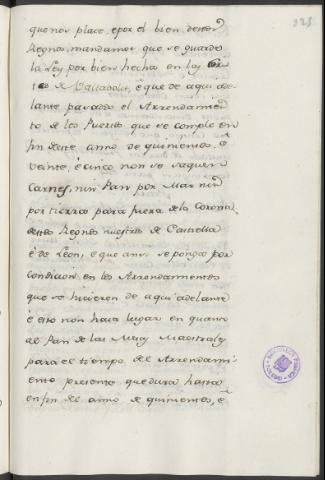 323
que nos place, e por el bien destos
Regnos, mandamos que se guarde
la Ley, por bien hechas en las Cor
tes de Valladolid, e que de aqui ade
lante pasado el Arrendamien
to de los Puertos que se comple en
fin deste anno de quinientos, e
veinte, e cinco non se saquen
Carnes, nin Pan por Mar nin
por tierra para fuera de la Corona
destos Regnos nuestros de Castiella
e de Leon, e que ansi se ponga por
condicion en los Arrendamientos
que se hicieren de aqui adelante
e esto non haia lugar en quanto
al Pan de las Mesas Maestrales
para el tiempo del Arrendami
ento presente que dura hasta
en fin del anno de quinientos, e